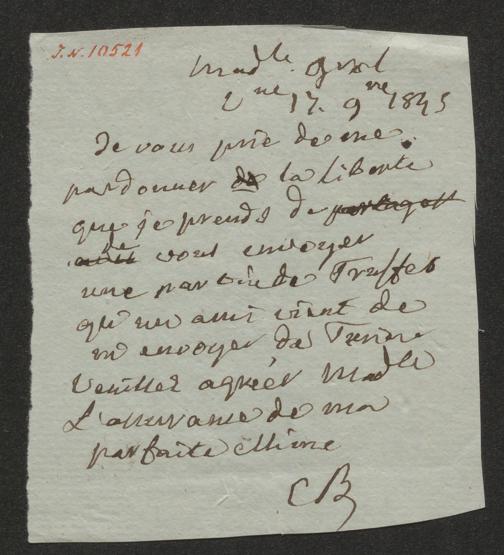 J.N. 10521
Madle
Vne 17. 9re 1845
Je vous prie de me
pardonner de la liberté
que je prends de
vous envoyer
une partie de Truffes
qu'un ami vient de
m'envoyer de Turin
Veuillez agréer Madle
L'assurance de ma
parfaite Estime
CB